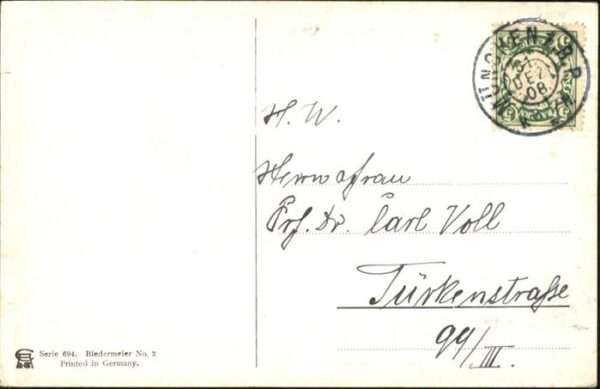 MÜNCHEN 7. B.P.
31.
DEZ
08.
H. W.
Herrn & Frau
Prof. Dr. Carl Voll
Türkenstraße
99/III.
Serie 694. Biedermeier No. 2
Printed in Germany.